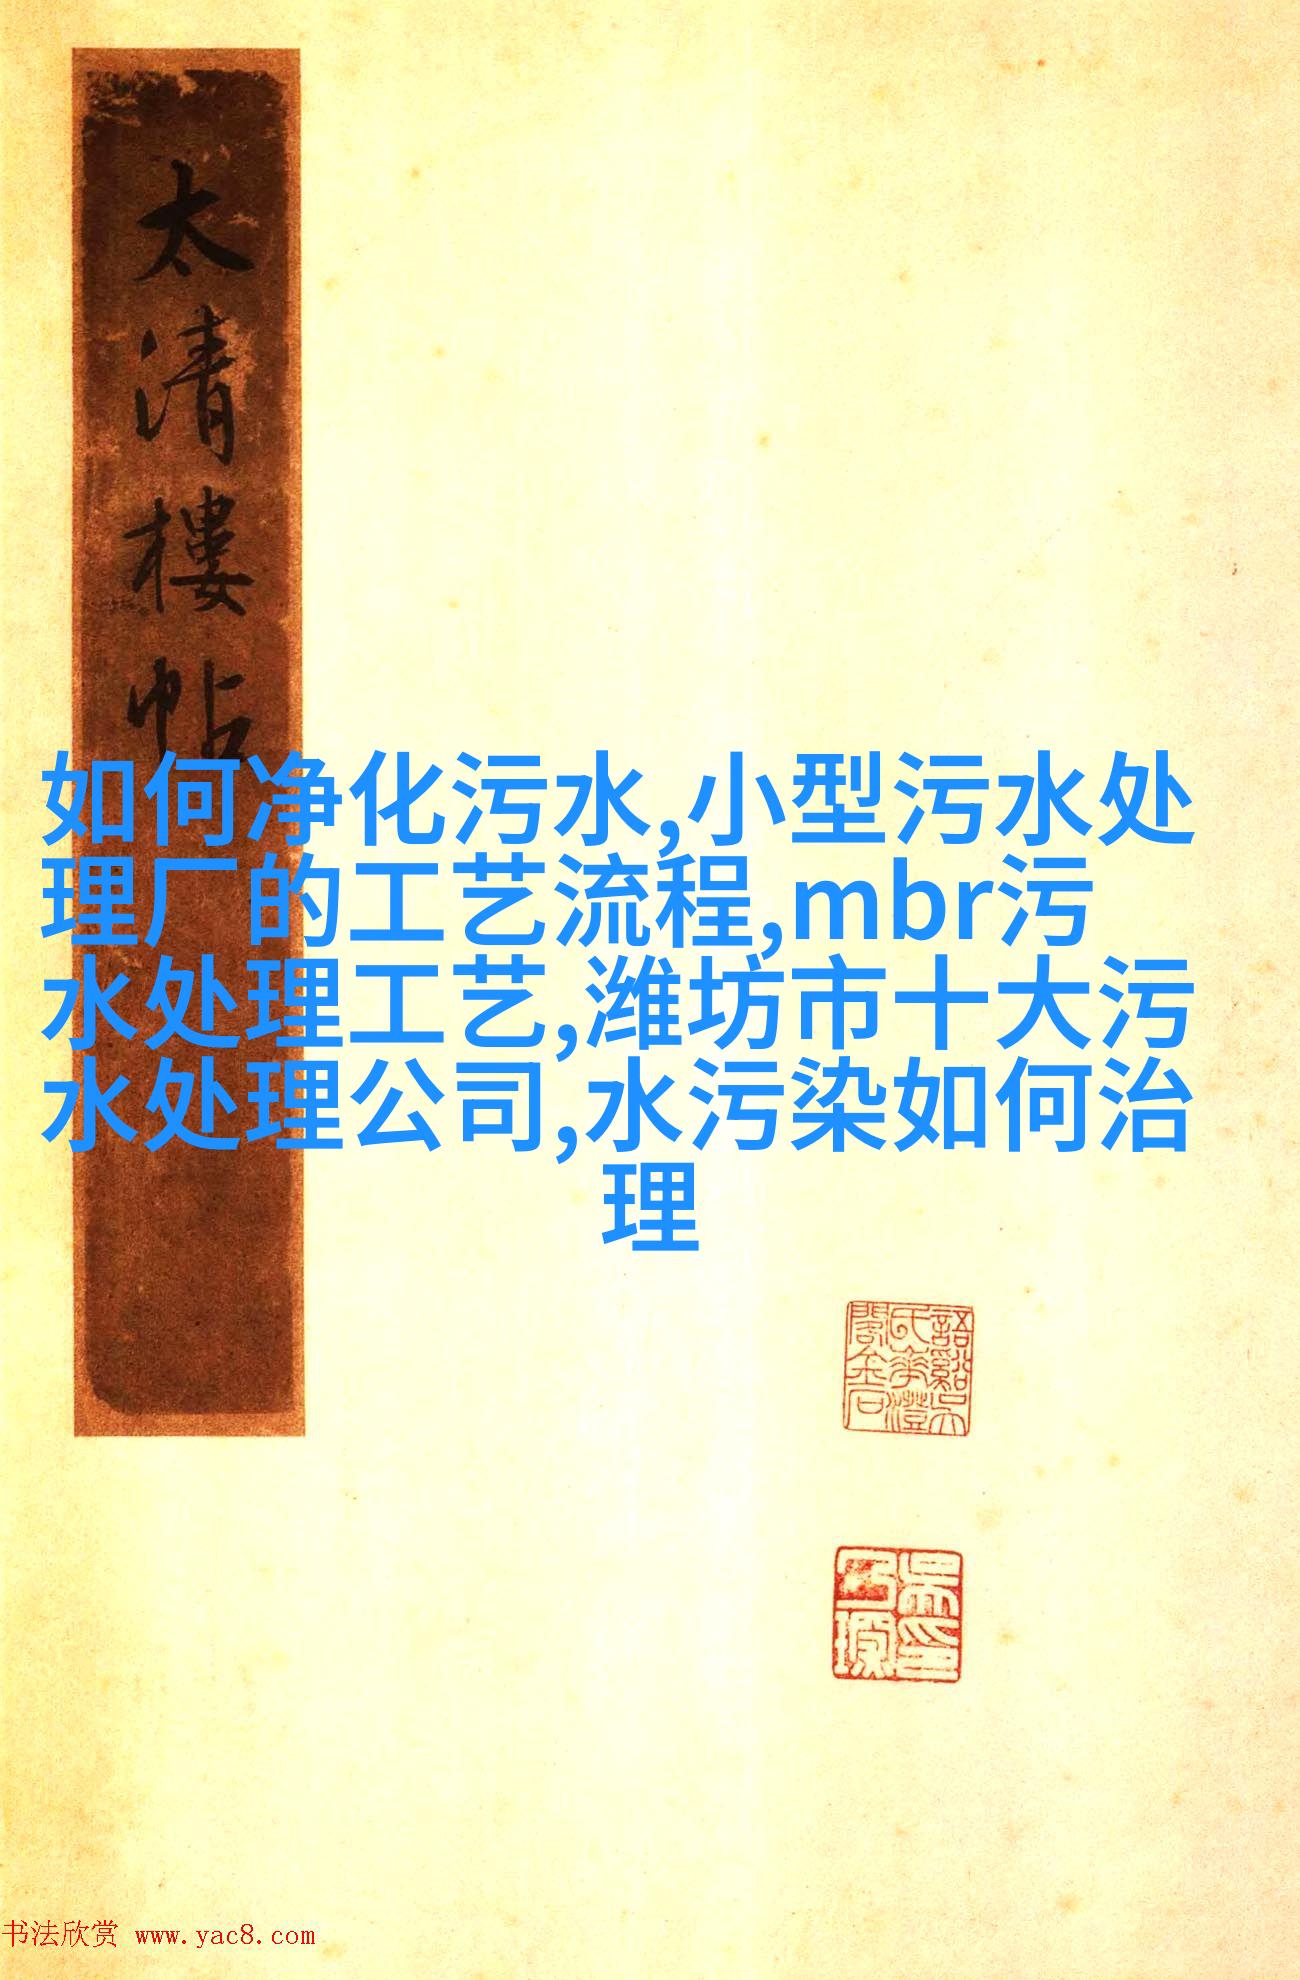 太清樓帖
如何净化污水,小型污水处
理厂的工艺流程,mbr污
水处理工艺,潍坊市十大污
水处理公司,水污染如何治
理
书法欣赏 www.yac8.com